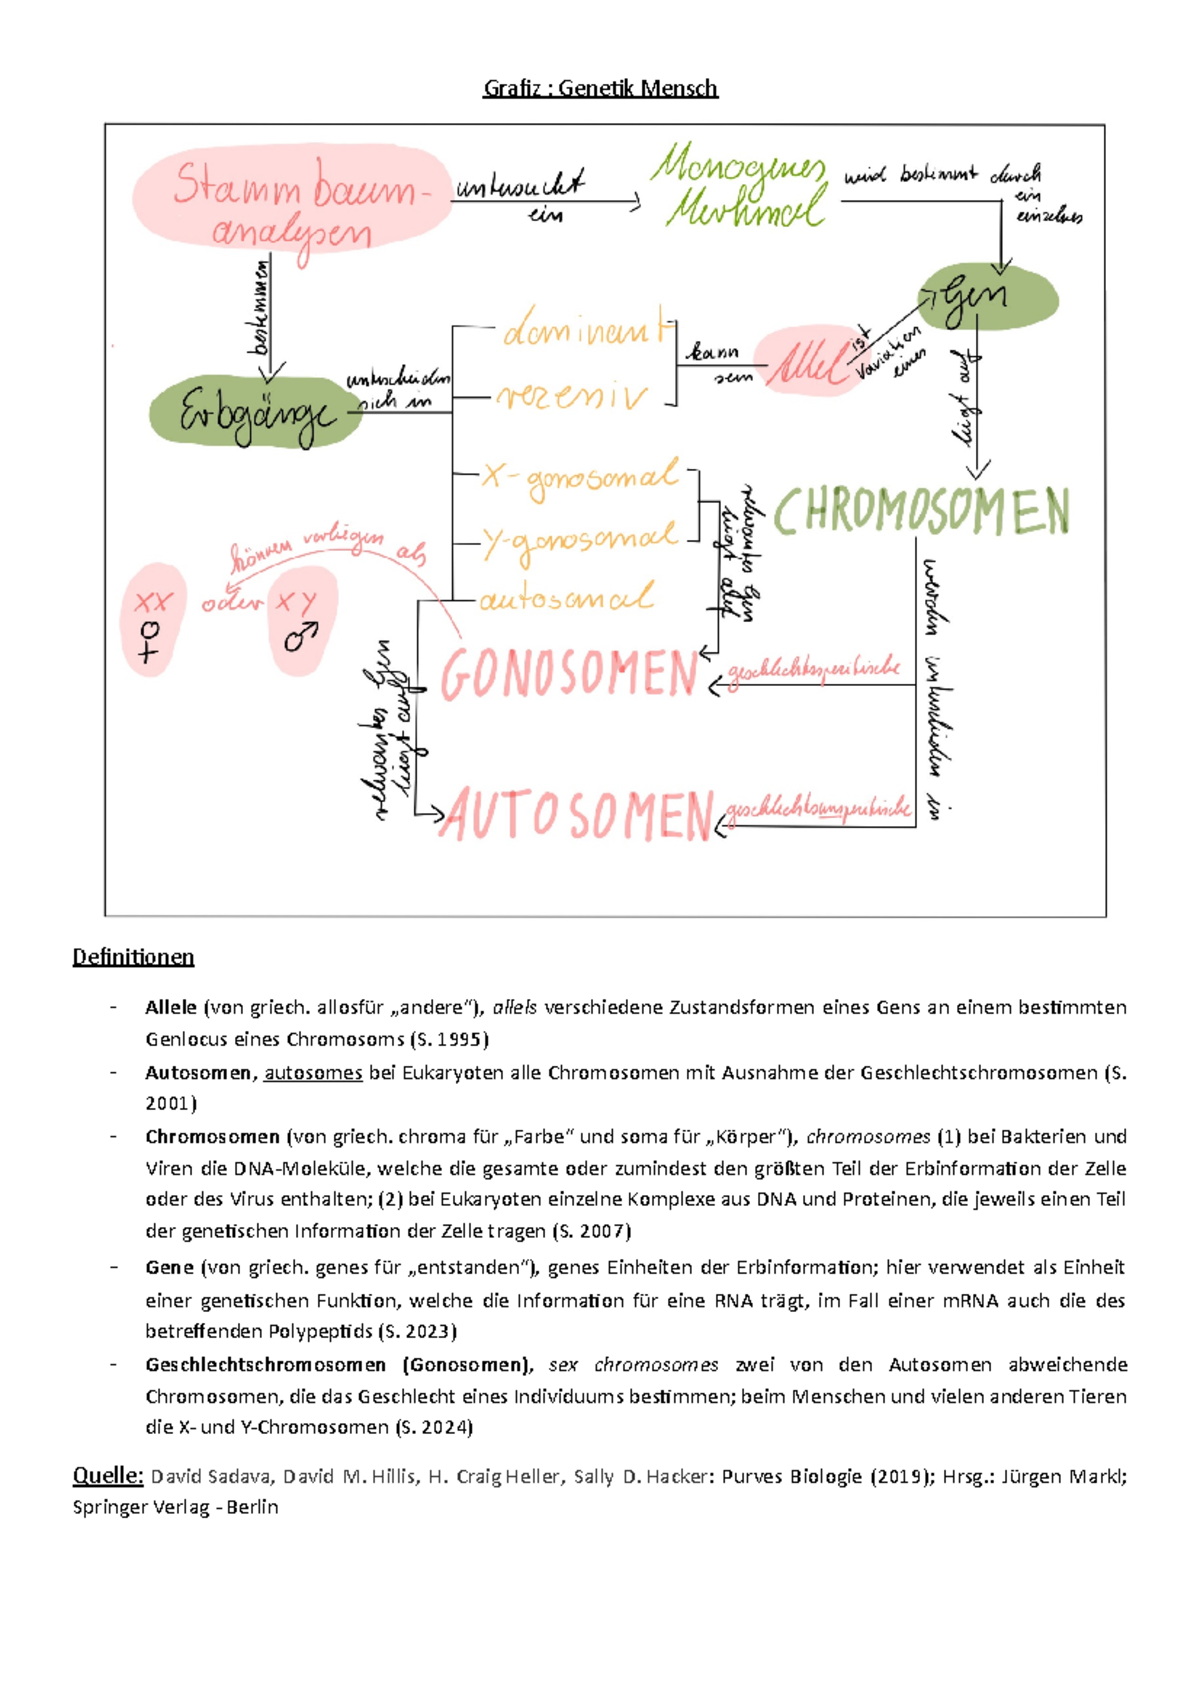 Grafiz : Genetik Mensch
Stammbaum-
analysen
untersucht
ein
Monogenes
Merkmal
wird bestimmt durch
ein
einzelnes
Gen
bestimmen
Erbgänge
unterscheiden
sich in
dominant
rezeniv
kann
sein
Allel
ist
Variation
eines
liegt auf
CHROMOSOMEN
X-gonosomal
Y-gonosomal
autosomal
relevantes Gen
liegt auf
können vorliegen als
XX oder XY
♀ ♂
GONOSOMEN
geschlechtsspezifische
werden unterschieden in
relevantes Gen
liegt auf
AUTOSOMEN
geschlechtsunspezifische
Definitionen
- Allele (von griech. allosfür „andere“), allels verschiedene Zustandsformen eines Gens an einem bestimmten
Genlocus eines Chromosoms (S. 1995)
- Autosomen, autosomes bei Eukaryoten alle Chromosomen mit Ausnahme der Geschlechtschromosomen (S.
2001)
- Chromosomen (von griech. chroma für „Farbe“ und soma für „Körper“), chromosomes (1) bei Bakterien und
Viren die DNA-Moleküle, welche die gesamte oder zumindest den größten Teil der Erbinformation der Zelle
oder des Virus enthalten; (2) bei Eukaryoten einzelne Komplexe aus DNA und Proteinen, die jeweils einen Teil
der genetischen Information der Zelle tragen (S. 2007)
- Gene (von griech. genes für „entstanden“), genes Einheiten der Erbinformation; hier verwendet als Einheit
einer genetischen Funktion, welche die Information für eine RNA trägt, im Fall einer mRNA auch die des
betreffenden Polypeptids (S. 2023)
- Geschlechtschromosomen (Gonosomen), sex chromosomes zwei von den Autosomen abweichende
Chromosomen, die das Geschlecht eines Individuums bestimmen; beim Menschen und vielen anderen Tieren
die X- und Y-Chromosomen (S. 2024)
Quelle: David Sadava, David M. Hillis, H. Craig Heller, Sally D. Hacker: Purves Biologie (2019); Hrsg.: Jürgen Markl;
Springer Verlag - Berlin